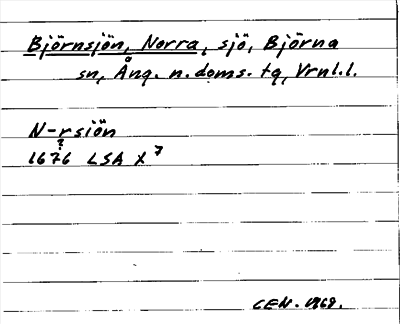 Björnsjön, Norra, sjö, Björna
sn, Ång. n. doms. tg, Vrnl.l.
N-rsjön
?
1676 LSA X 7
CEN. 1969.